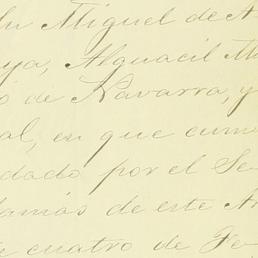 Miguel de
Alguacil
de Navarra, y
al, en que
dado por el Se
demás de este
cuatro de